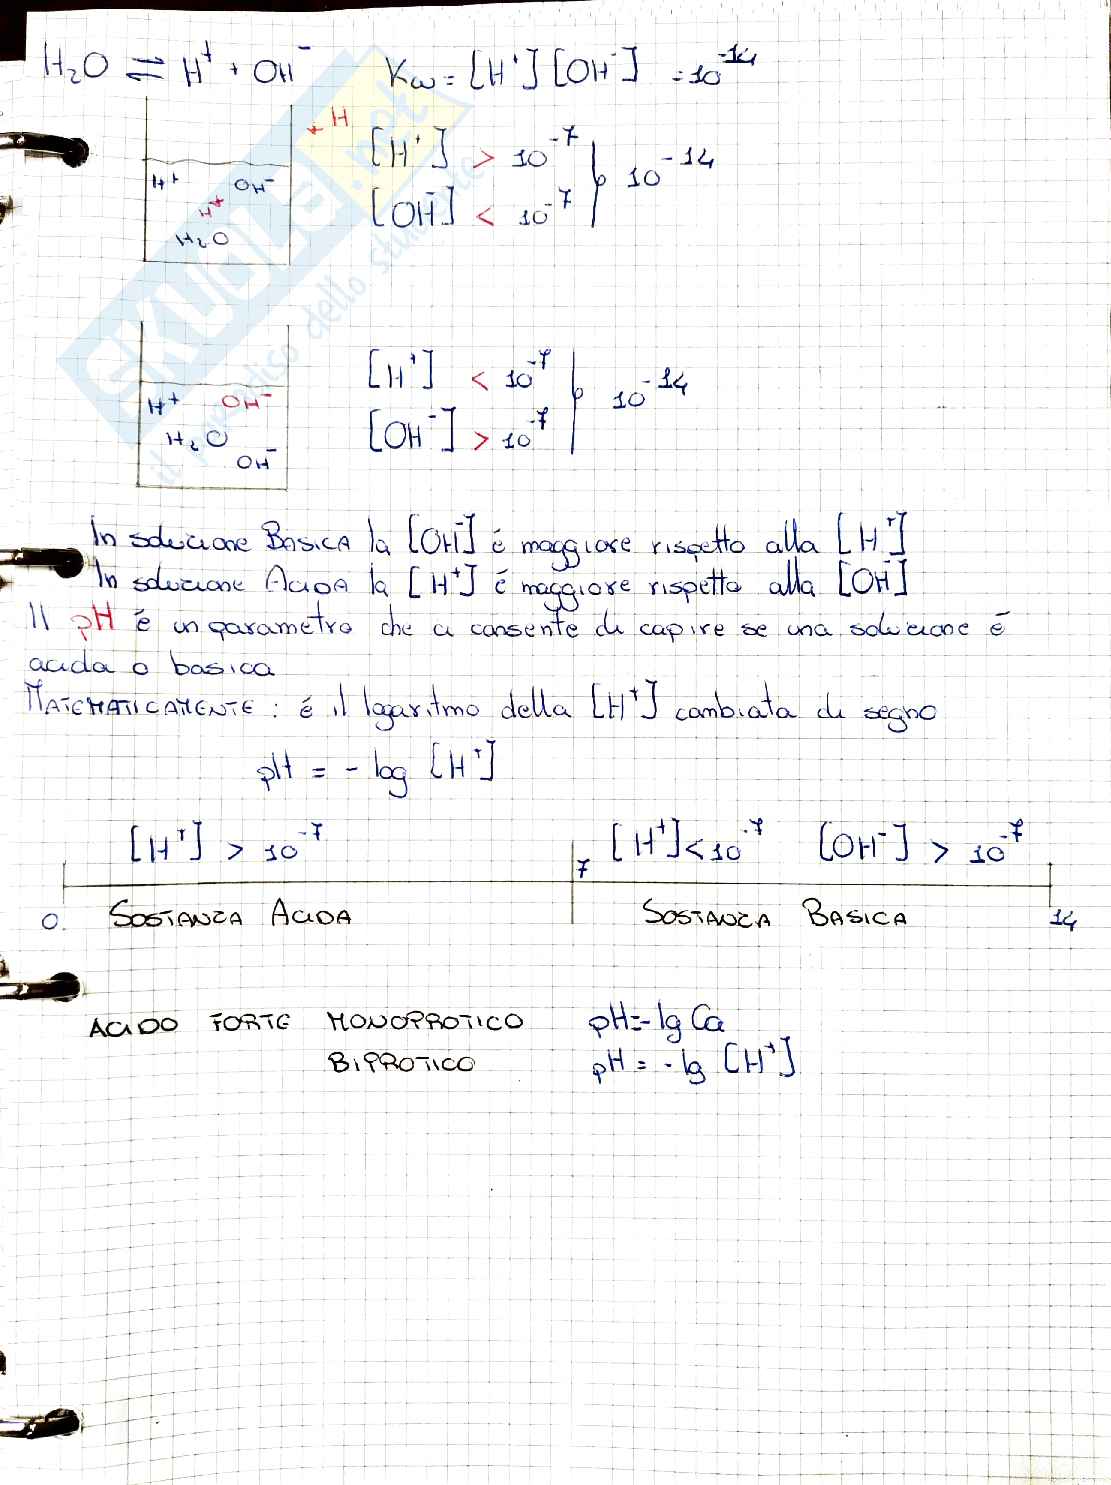 H₂O ⇌ H⁺ + OH⁻ Kw = [H⁺][OH⁻] = 10⁻¹⁴
+ H
[H⁺] > 10⁻⁷
10⁻¹⁴
[OH⁻] < 10⁻⁷
H⁺ OH⁻
H⁺
H₂O
SKUOLA.net
il paradiso dello studente
[H⁺] < 10⁻⁷
10⁻¹⁴
[OH⁻] > 10⁻⁷
H⁺ OH⁻
H₂O
OH⁻
In soluzione BASICA la [OH⁻] é maggiore rispetto alla [H⁺]
In soluzione ACIDA la [H⁺] é maggiore rispetto alla [OH⁻]
Il pH è un parametro che ci consente di capire se una soluzione é
acida o basica
MATEMATICAMENTE: é il logaritmo della [H⁺] cambiata di segno
pH = - log [H⁺]
[H⁺] > 10⁻⁷ [H⁺] < 10⁻⁷ [OH⁻] > 10⁻⁷
7
0. SOSTANZA ACIDA SOSTANZA BASICA 14
ACIDO FORTE MONOPROTICO pH = - lg Ca
BIPROTICO pH = - lg [H⁺]